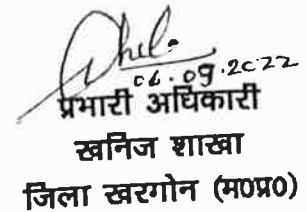 06.09.2022
प्रभारी अधिकारी
खनिज शाखा
जिला खरगोन (म०प्र०)